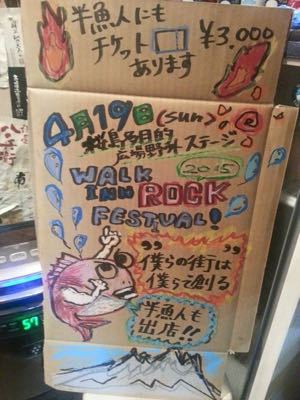 半魚人にも
チケット ¥3,000
あります
4月19日(sun)
桜島多目的
広場野外ステージ
2015
WALK
INN ROCK
FESTVAL!
"僕らの街は"
僕らで創る
半魚人も
出店!!
57